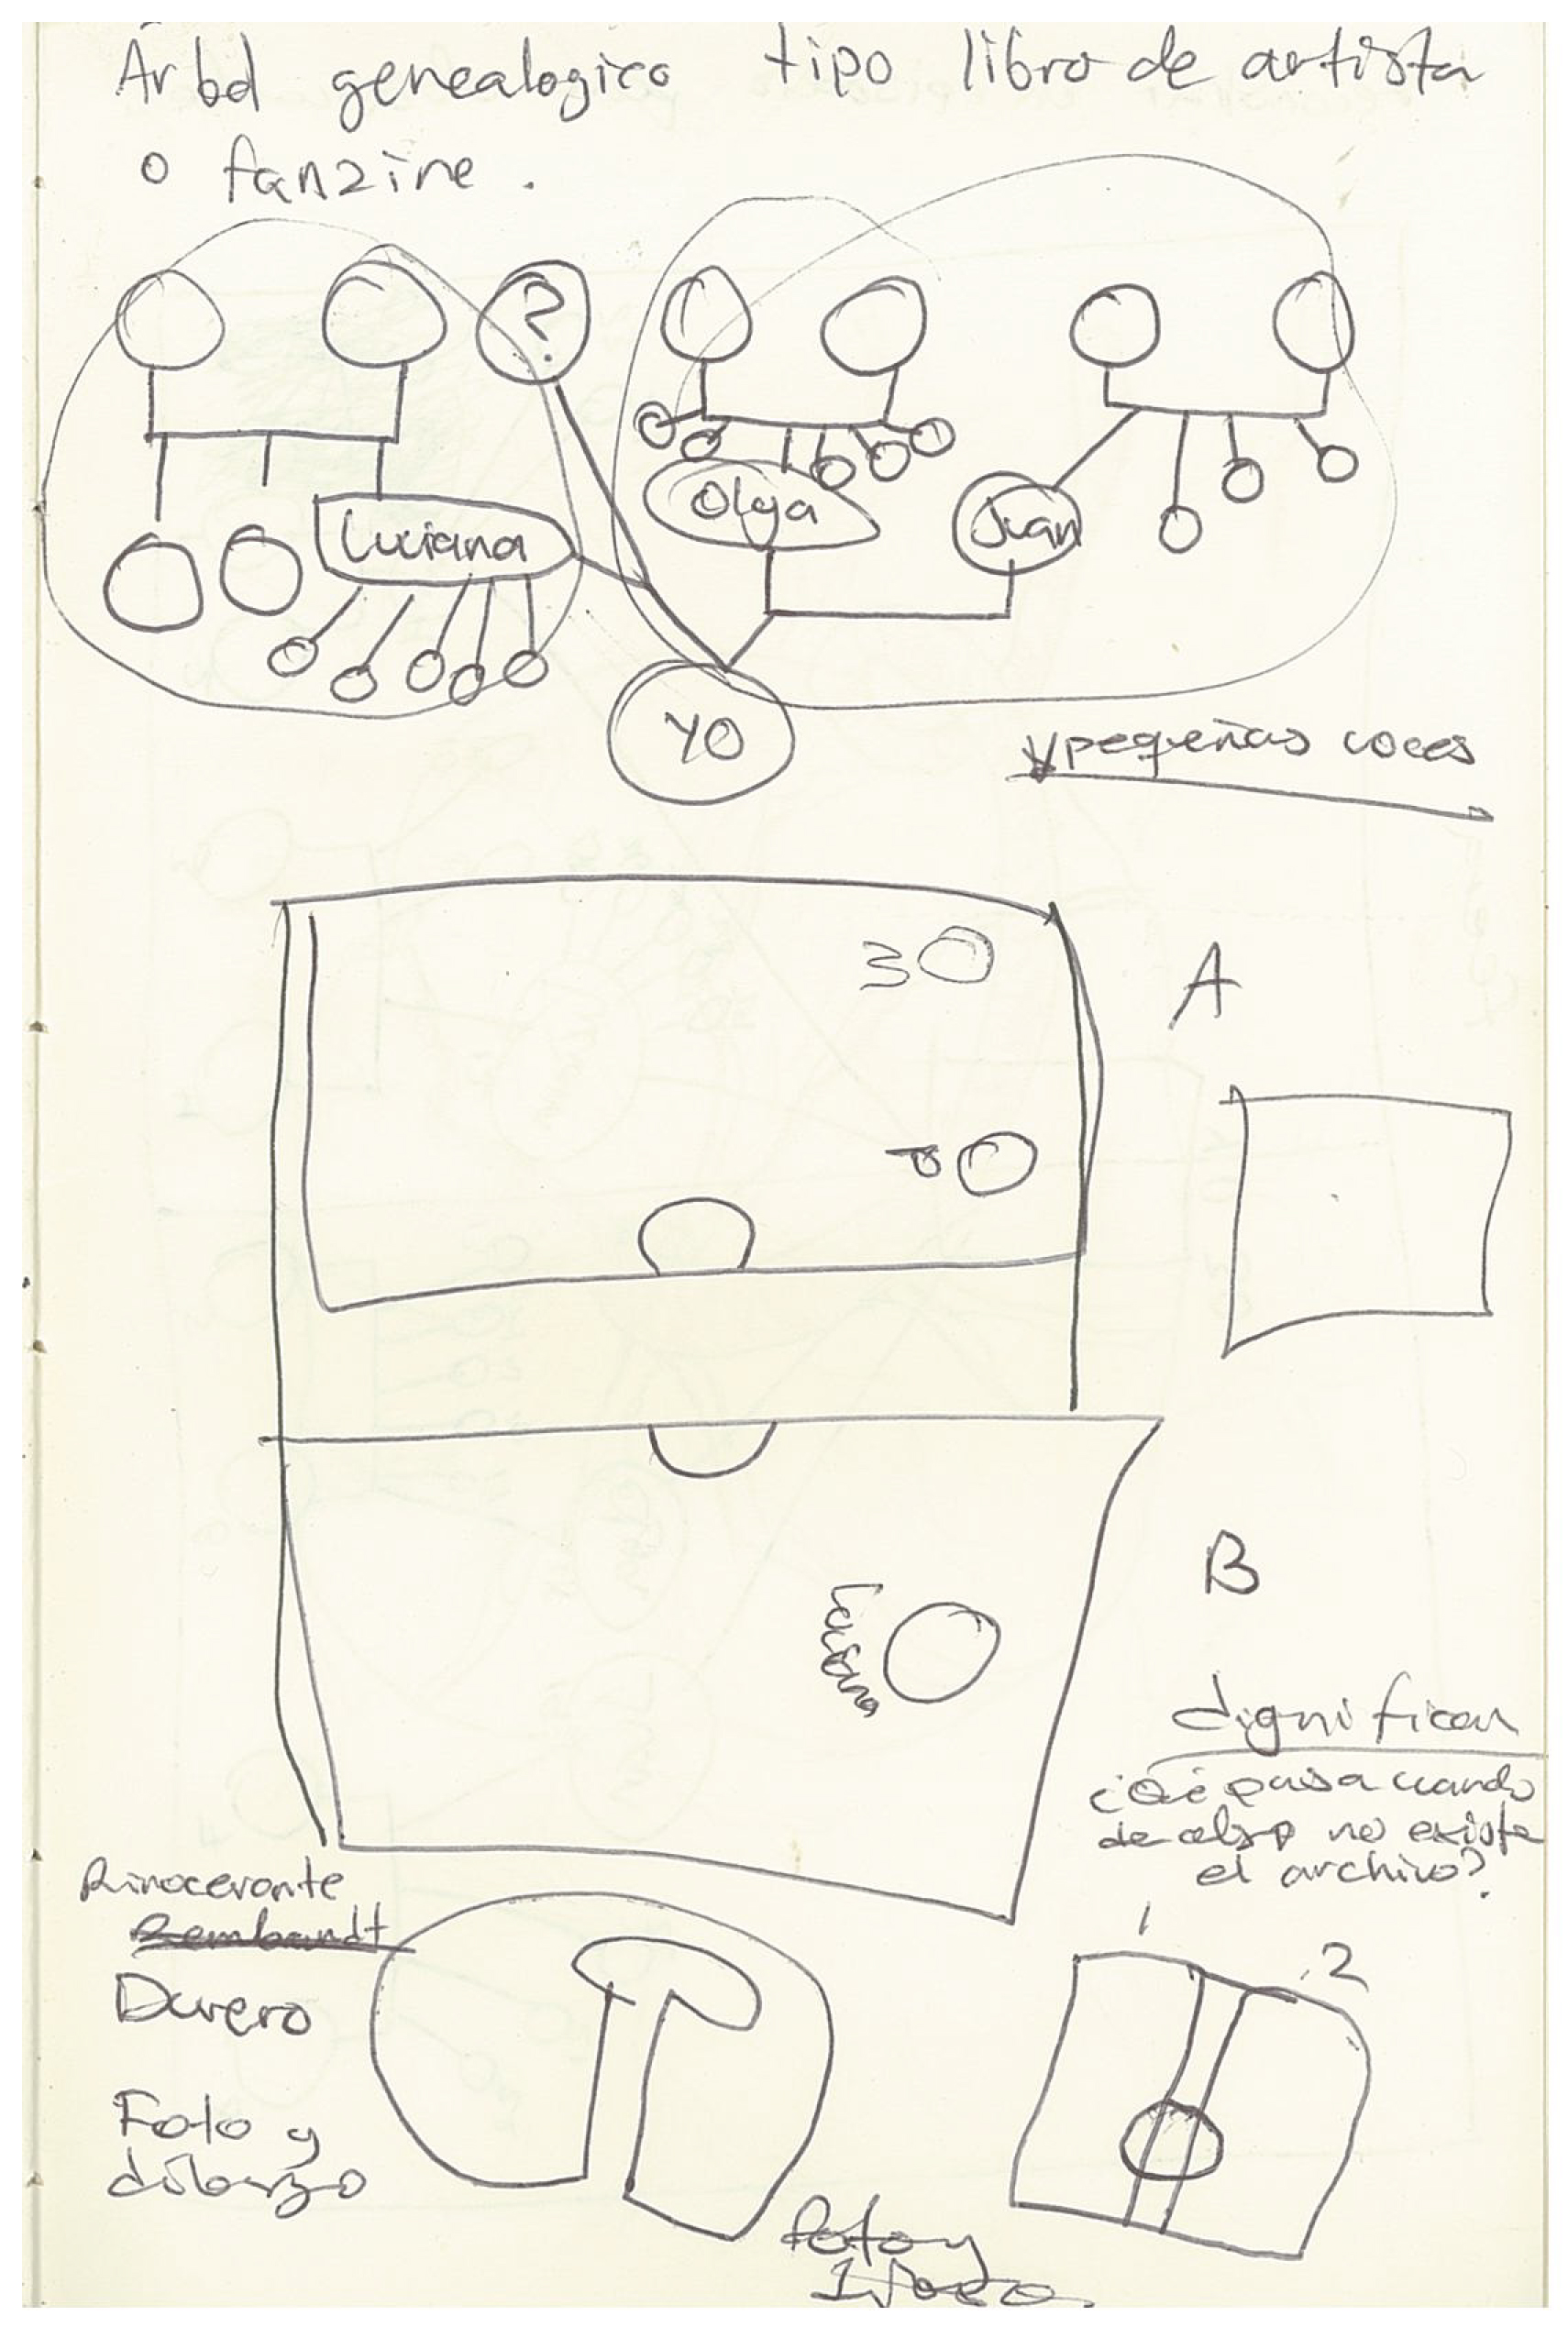 Arbol genealogico tipo libro de artista
o fanzine.
?
Olga
Juan
Luciana
YO
pequeñas voces
A
B
Luciana
dignificar
¿Qué pasa cuando
de algo no existe
el archivo?
Rinoceronte
Rembandt
Durero
Foto y
dibujo
1
2
foto y